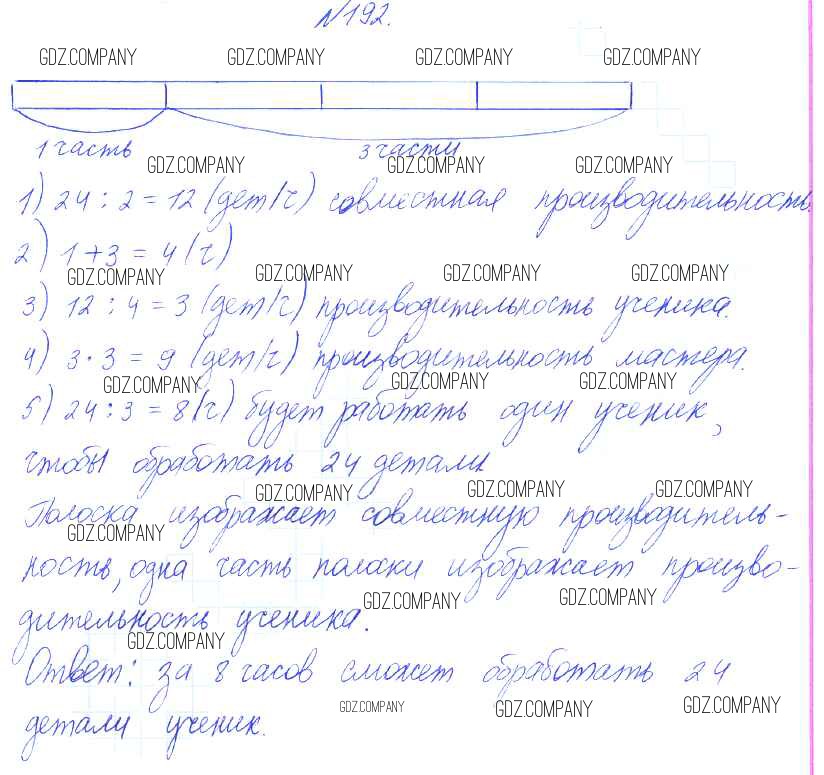 №192.
GDZ.COMPANY GDZ.COMPANY GDZ.COMPANY GDZ.COMPANY
1 часть 3 части
GDZ.COMPANY GDZ.COMPANY GDZ.COMPANY
1) 24 : 2 = 12 (дет/ч) совместная производительность.
2) 1 + 3 = 4 (ч)
GDZ.COMPANY GDZ.COMPANY GDZ.COMPANY GDZ.COMPANY
3) 12 : 4 = 3 (дет/ч) производительность ученика.
4) 3 · 3 = 9 (дет/ч) производительность мастера.
GDZ.COMPANY GDZ.COMPANY GDZ.COMPANY
5) 24 : 3 = 8 (ч) будет работать один ученик,
чтобы обработать 24 детали
GDZ.COMPANY GDZ.COMPANY GDZ.COMPANY
Полоска изображает совместную производитель-
GDZ.COMPANY
ность, одна часть полоски изображает произво-
GDZ.COMPANY GDZ.COMPANY
дительность ученика.
GDZ.COMPANY
Ответ: за 8 часов сможет обработать 24
GDZ.COMPANY GDZ.COMPANY GDZ.COMPANY
детали ученик.